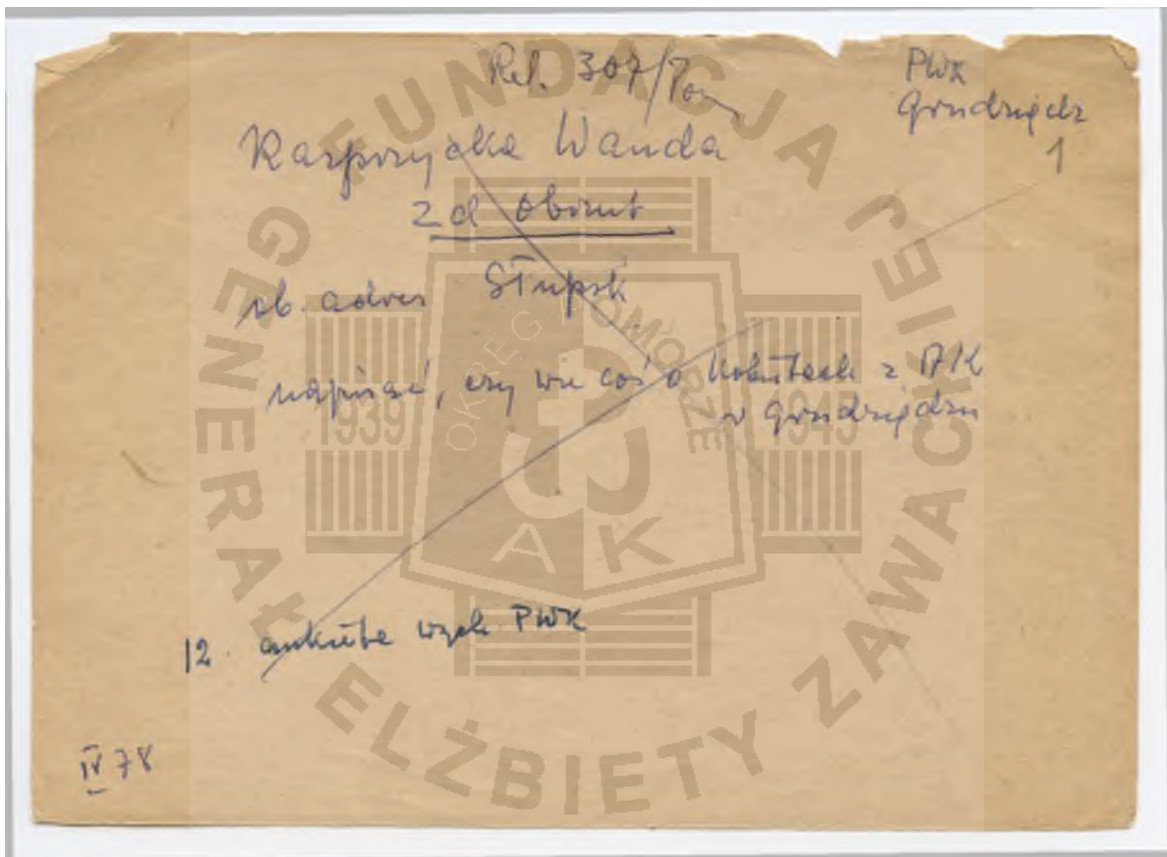 Rel. 307/Pom
PWK
Grudziądz
1
Wanda
z d Obrut
ob. adres Słupsk
napisać, czy wie coś o kobietach z AK
w Grudziądzu
12. ankieta wych PWK
IV 78
FUNDACJA GENERAŁ ELŻBIETY ZAWACKIEJ
OKRĘG POMORZE
1939
1945
AK